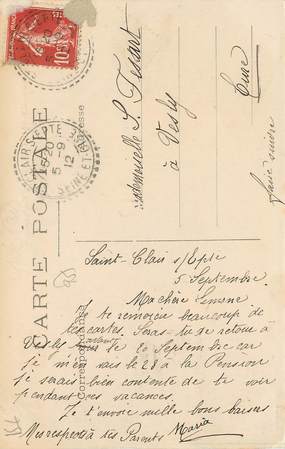 CARTE POSTALE
Correspondance
Adresse
10c
15 20
5 - 9
12
SEINE-ET-
Mademoiselle S. Tessart
à Vesly
Eure
faire suivre
Saint-Clair s/Epte
5 Septembre
Ma chère Simone
Je te remercie beaucoup de
tes cartes. Seras-tu de retour à
Vesly avant le 20 Septembre car
je m'en vais le 28 à la Pension
je serais bien contente de te voir
pendant ces vacances.
Je t'envoie mille bons baisers
Mes respects à tes Parents Maria